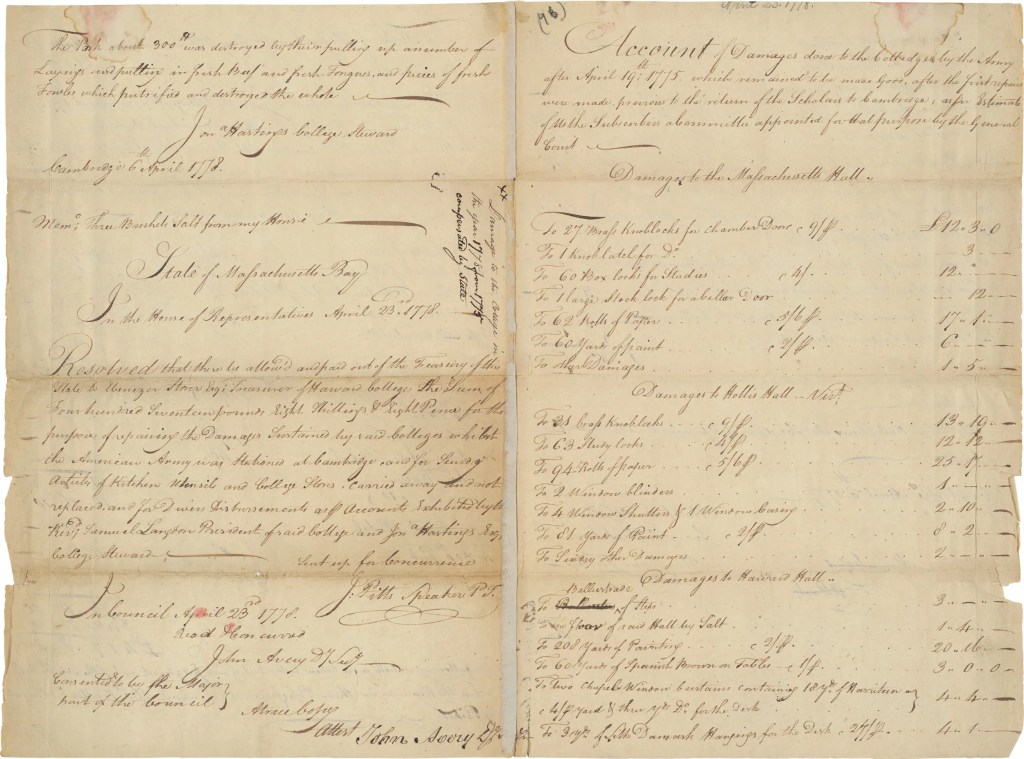 The Pork about 300 lb was destroyed by their putting up a number of
Layings and putting in fresh Beef and fresh Tongues, and pieces of fresh
Fowles which putrified and destroyed the whole
Jon.a Hastings College Steward
Cambridge 6th April 1778.
Mem.o Three Bushels Salt from my House
State of Massachusetts Bay
In the House of Representatives April 23rd 1778.
Resolved that there be allowed and paid out of the Treasury of this
State to Ebenezer Storer Esq.r Treasurer of Harvard College the Sum of
Four hundred Seventeen pounds Eight Shillings & Eight Pence for the
purpose of repairing the Damages Sustained by said Colleges whilst
the American Army was Stationed at Cambridge and for Sundry
Articles of Kitchen Utensils and College Stores, carried away and not
replaced, and for Divers Disbursements as Account Exhibited by the
Rev.d Samuel Langdon President of said College and Jon.a Hastings Esq.
College Steward
Sent up for Concurrence
J: Pitts Speaker P.T.
In Council April 23rd 1778.
Read & Concurred
John Avery Dy Secy
Consented to by the Major
part of the Council
A true Copy
Attest John Avery
xx Damage to the College in
the year 1775 from 1775
compensated by State
(78)
April 23. 1778.
Account of Damages done to the Colledges by the Army
after April 19th: 1775, which remained to be made Good, after the first repairs
were made previous to the return of the Scholars to Cambridge, as per Estimate
of Us the Subscribers a Committee appointed for that purpose by the General
Court
Damages to the Massachusetts Hall
To 27 Brass Knoblocks for Chamber Doors @ 9/ p. £12 - 3 - 0
To 1 Knob latch for Do. 3
To 60 Box locks for Studies @ 4/. 12
To 1 large Stock lock for a Cellar Door 12
To 62 Rolls of Paper @ 5/6 p. 17 - 1
To 60 Yards of paint @ 2/ p. 6
To other Damages 1 - 5
Damages to Hollis Hall Viz.t
To 31 brass Knoblocks @ 9/ p. 13 - 19
To 63 Study locks @ 4/ p. 12 - 12
To 94 Rolls of paper @ 5/6 p. 25 - 17
To 2 Window blinders 1
To 4 Window Shutters & 1 Window Casing 2 - 10
To 81 Yards of Paint @ 2/ p. 8 - 2
To Sundry other Damages 2
Damages to Harvard Hall
Bellustrade
To of Steps 3
To floor of said Hall by Salt 1 - 4
To 208 Yards of Painting @ 2/ p. 20 - 16
To 60 Yards of Spanish Brown on Tables @ 1/ p. 3 - 0 - 0
To two Chapel Window Curtains containing 18 yds of Harrateen
@ 4/ p Yard & three yds Do. for the Desk 4 - 4
To 3 yds Silk Damask Hangings for the Desk @ 27/ p. 4 - 1